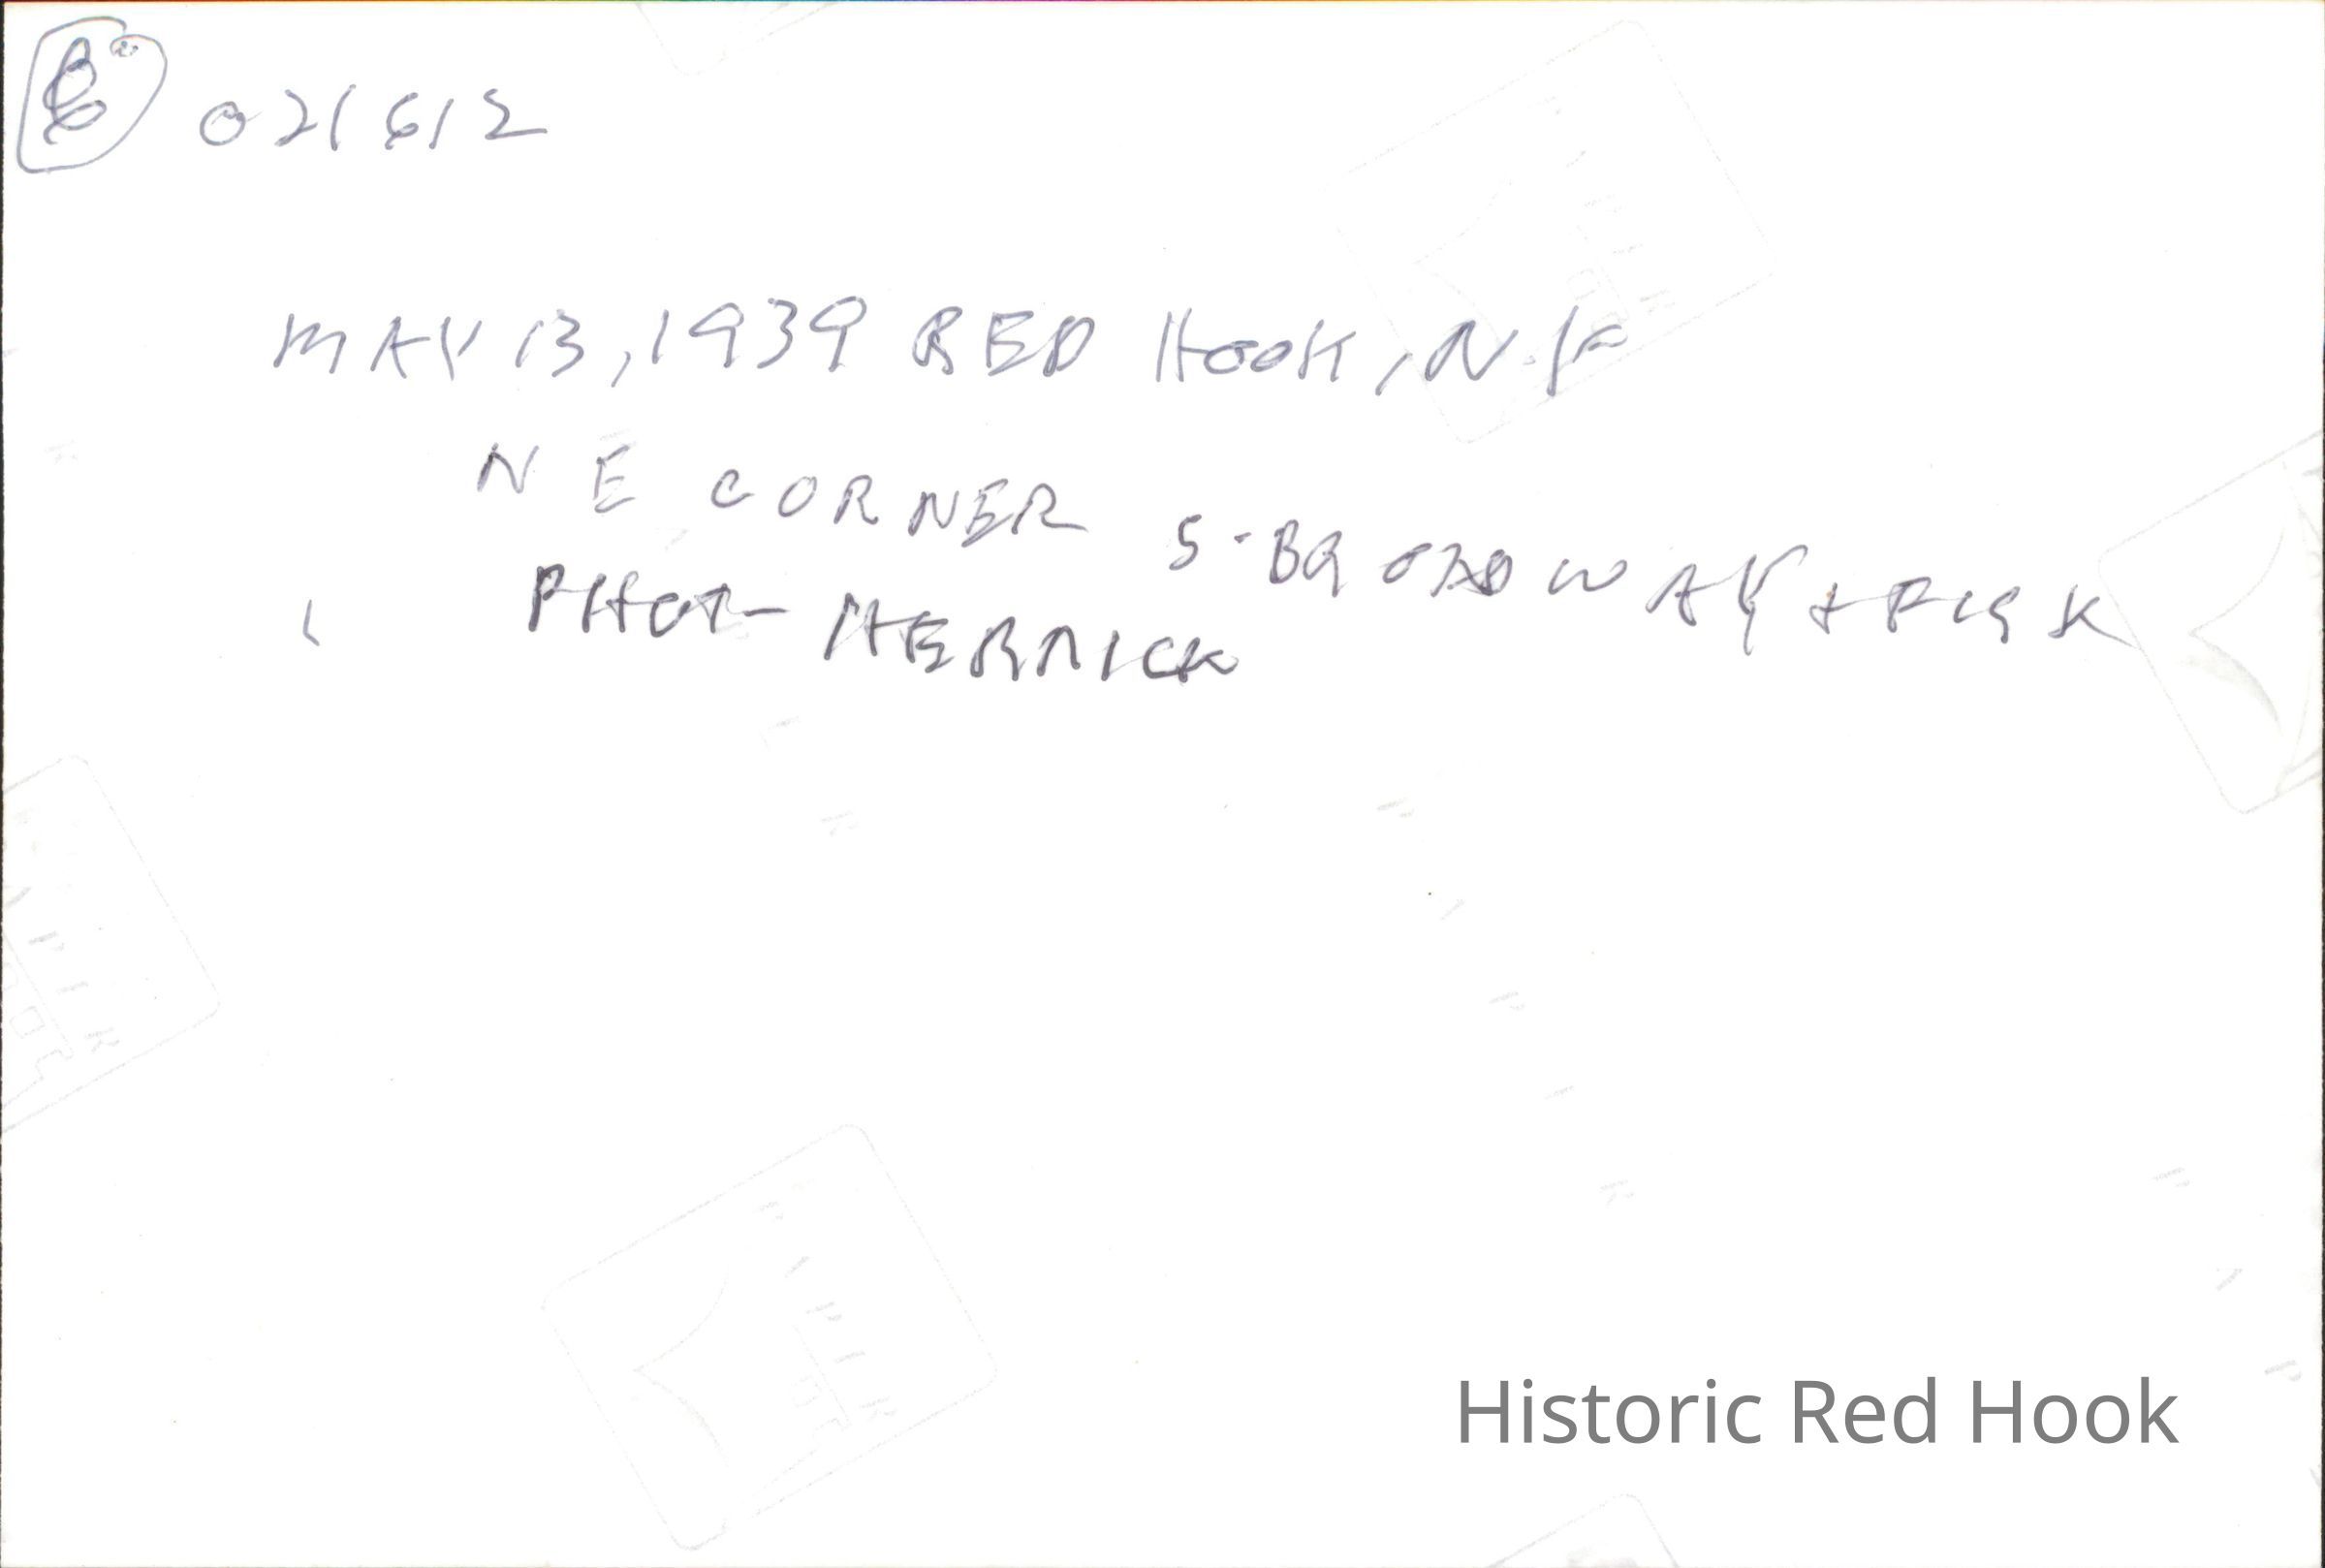 021612
MAY 13, 1939 RED HOOK, N.Y.
N E CORNER S. BROADWAY + FISK
PHOT- HERRICK
Historic Red Hook